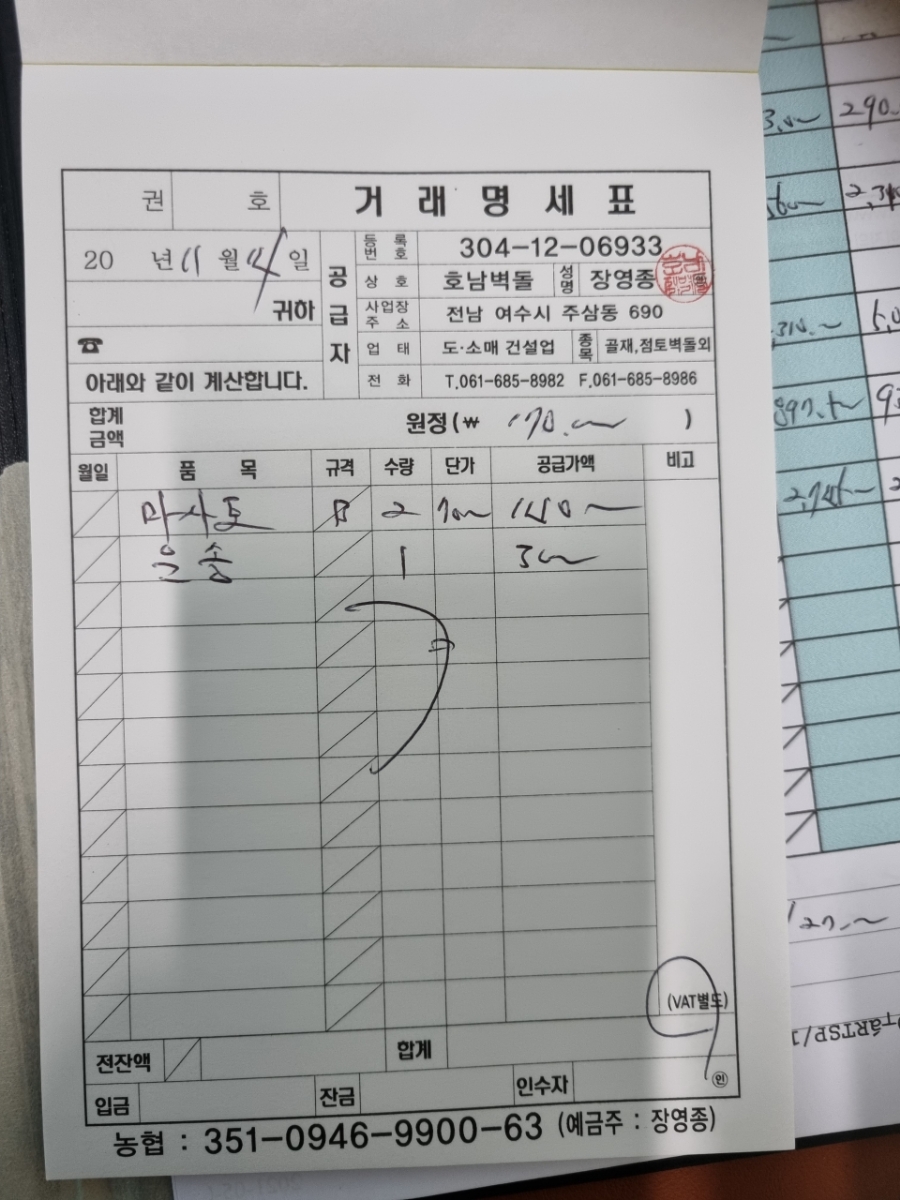 권 호 거래명세표
20 년 11 월 14 일
귀하
☎
아래와 같이 계산합니다.
공급자
등록번호 304-12-06933
상호 호남벽돌 성명 장영종
사업장주소 전남 여수시 주삼동 690
업태 도·소매 건설업 종목 골재,점토벽돌외
전화 T.061-685-8982 F.061-685-8986
합계금액 원정(₩ 170.~ )
월일 품목 규격 수량 단가 공급가액 비고
마사토 2 70~ 140~
운송 1 30~
(VAT별도)
전잔액 합계
입금 잔금 인수자 ㊞
농협 : 351-0946-9900-63 (예금주 : 장영종)
290
127.~